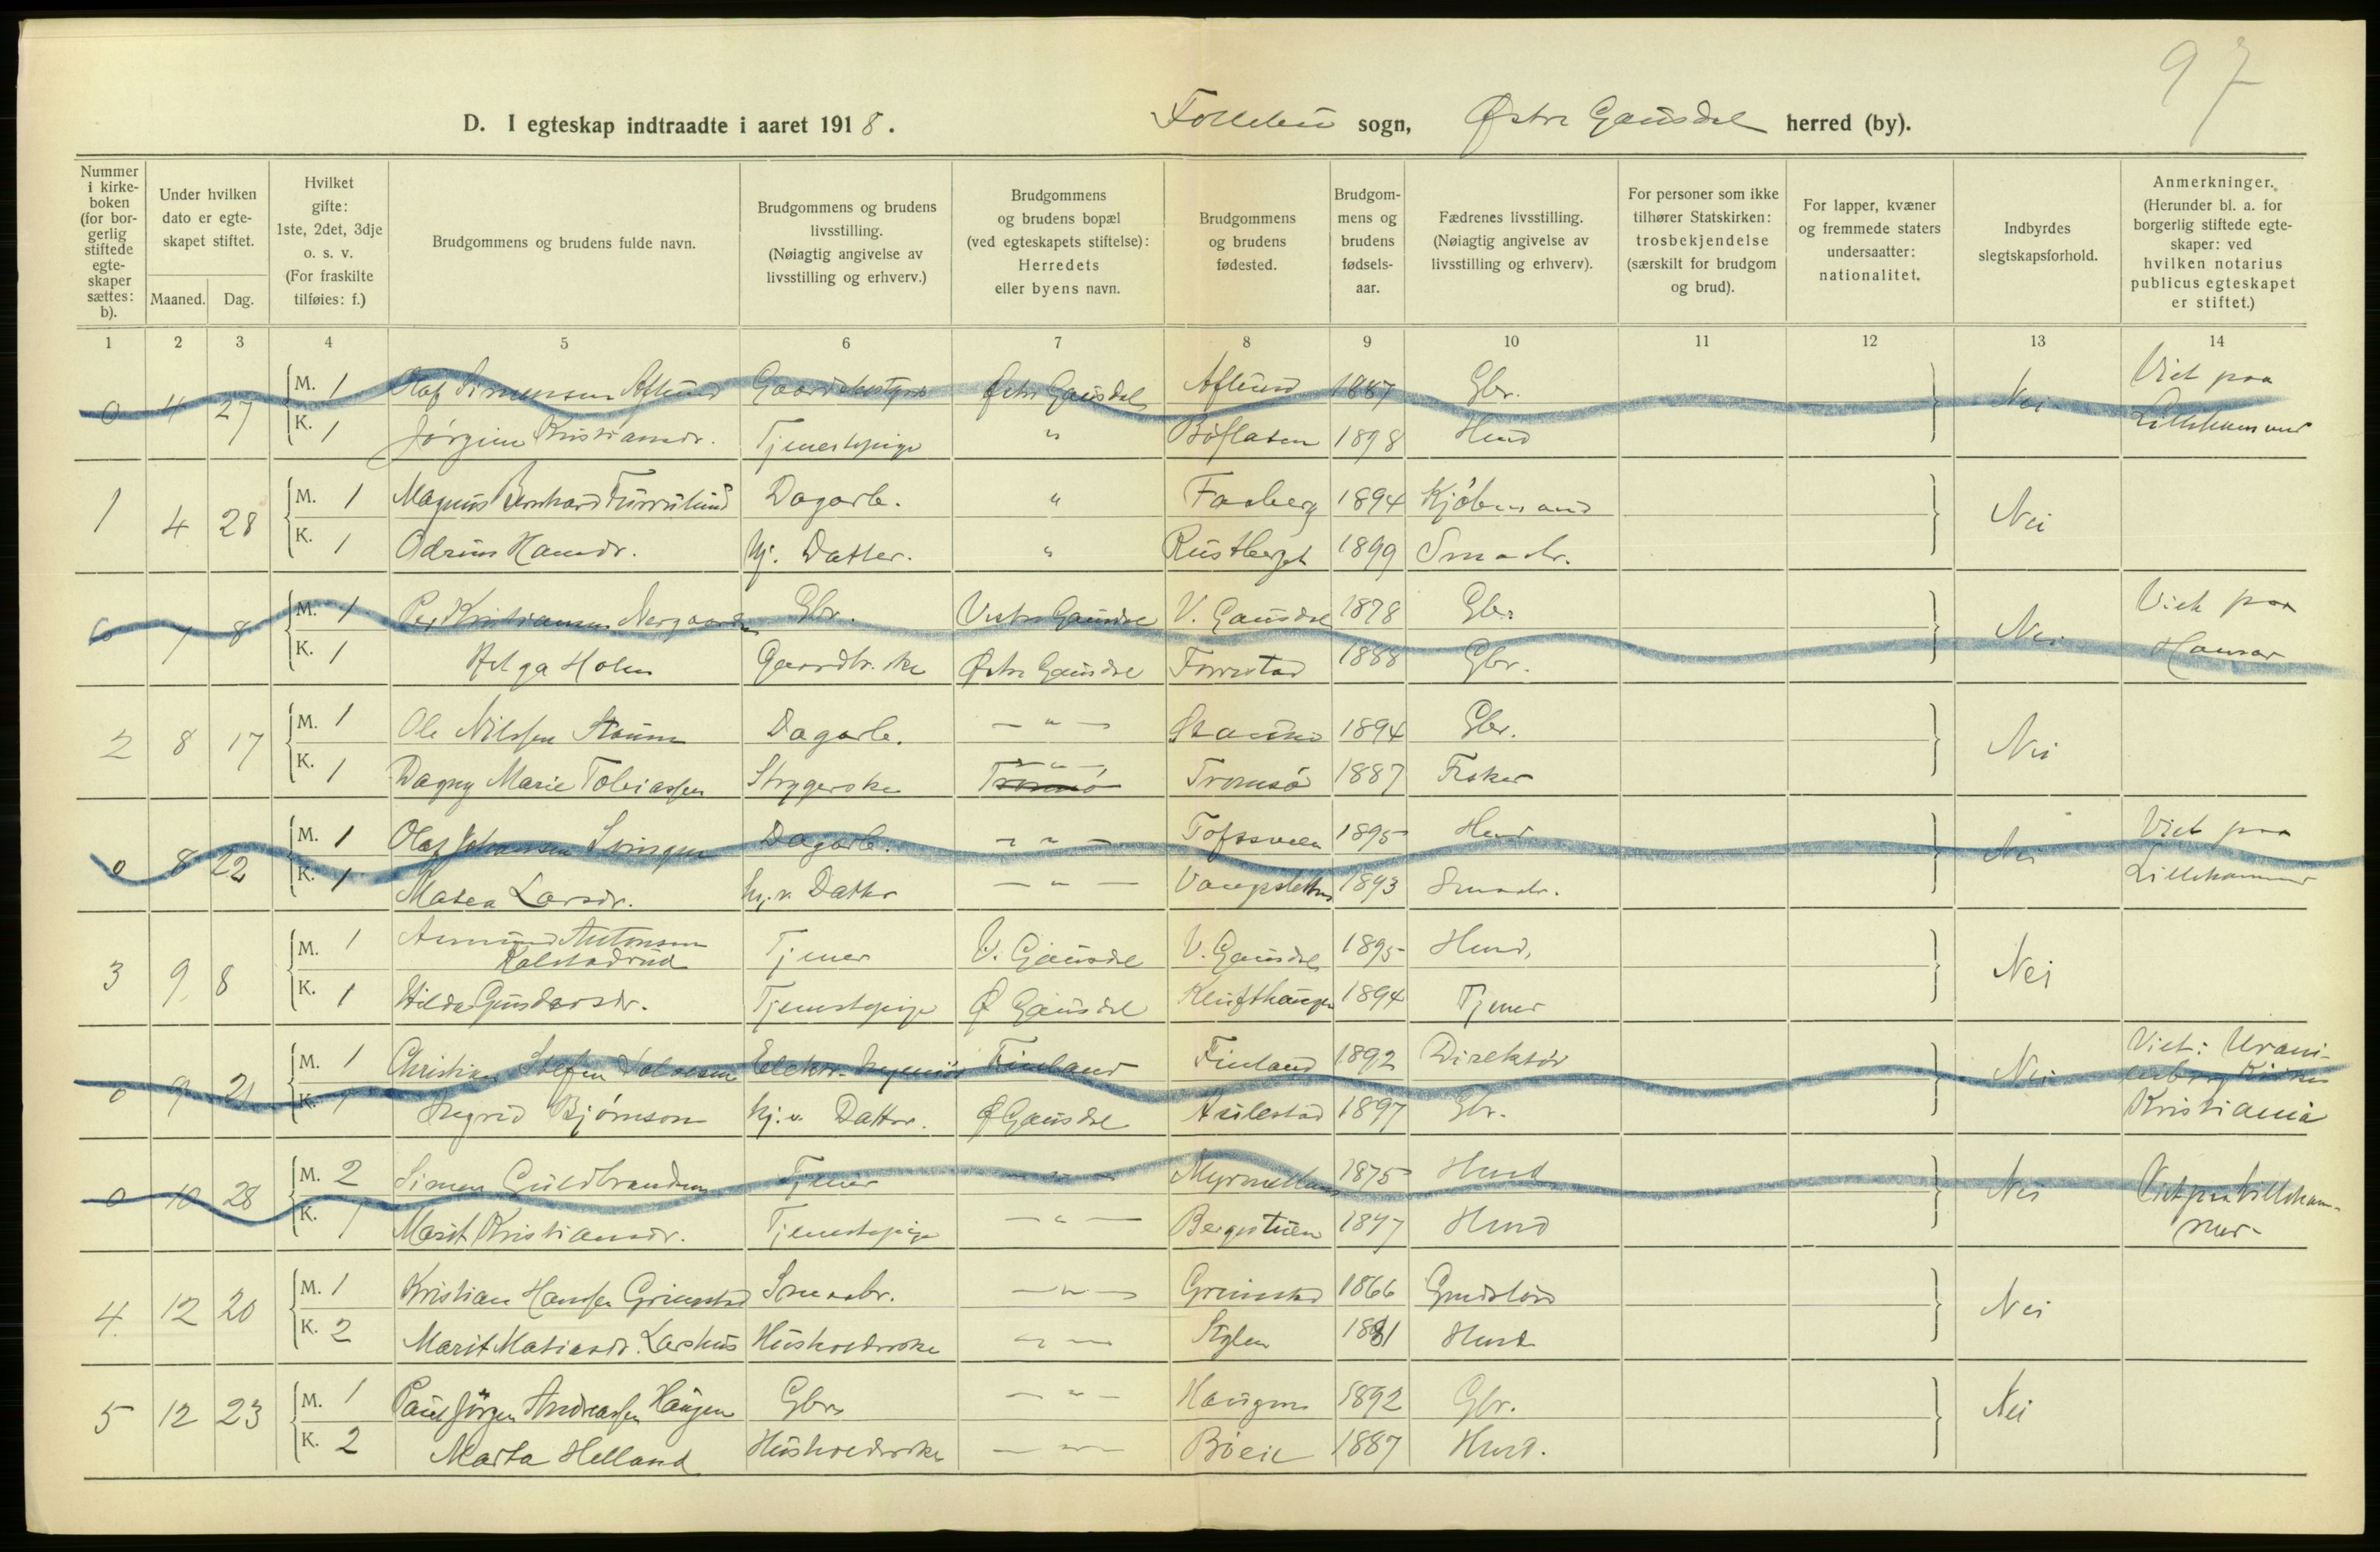 97
D. I egteskap indtraadte i aaret 1918. Follebu sogn, Østre Gausdal herred (by).
Nummer i kirke-boken (for bor-gerlig stiftede egte-skaper sættes: b).
Under hvilken dato er egte-skapet stiftet.
Maaned. Dag.
Hvilket gifte: 1ste, 2det, 3dje o. s. v. (For fraskilte tilføies: f.)
Brudgommens og brudens fulde navn.
Brudgommens og brudens livsstilling. (Nøiagtig angivelse av livsstilling og erhverv.)
Brudgommens og brudens bopæl (ved egteskapets stiftelse): Herredets eller byens navn.
Brudgommens og brudens fødested.
Brudgom-mens og brudens fødsels-aar.
Fædrenes livsstilling. (Nøiagtig angivelse av livsstilling og erhverv).
For personer som ikke tilhører Statskirken: trosbekjendelse (særskilt for brudgom og brud).
For lapper, kvæner og fremmede staters undersaatter: nationalitet.
Indbyrdes slegtskapsforhold.
Anmerkninger. (Herunder bl. a. for borgerlig stiftede egte-skaper: ved hvilken notarius publicus egteskapet er stiftet.)
1 2 3 4 5 6 7 8 9 10 11 12 13 14
0 4 27 M. 1 Olaf Simensen Aflund Østre Gausdal Aflund 1887 Gbr. Nei Viet paa
K. 1 Jørgine Kristiansdr. Tjenestepige " Böflaten 1898 Husd Lillehammer
1 4 28 M. 1 Magnus Bernhard Furulund Dagarb. " Faaberg 1894 Kjøbmand Nei
K. 1 Odrun Hansdr. hj. Datter. " Rustberget 1899 Smaabr.
0 7 8 M. 1 Per Kristiansen Nergaarden Gbr. Vestre Gausdal V. Gausdal 1878 Gbr. Nei Viet paa
K. 1 Helga Holen Gaardbr.ske Østre Gausdal 1888 Gbr. Hamar
2 8 17 M. 1 Ole Nilssen Dagarb. — " — 1894 Gbr. Nei
K. 1 Dagny Marie Tobiassen Strygerske — " — Tromsö Tromsö 1887 Fisker
0 8 22 M. 1 Olaf Johansen Svingen Dagarb. — " — Toftsveen 1895 Husd Nei Viet paa
K. 1 Matea Larsdr. hj.v. Datter — " — 1893 Smaabr. Lillehammer
3 9 8 M. 1 Amund Antonsen Kalstadrud Tjener V. Gausdal V. Gausdal 1895 Husd. Nei
K. 1 Hilda Gundersdr. Tjenestepige Ø Gausdal Klufthaugen 1894 Tjener
0 9 21 M. 1 Christian Elektr. Ingeniör Finland Finland 1892 Direktör Nei Viet i Urani-
enborg Kirke
K. 1 Ingrid Bjørnson hj.v. Datter. Ø Gausdal Aulestad 1897 Gbr. Kristiania
0 10 28 M. 2 Simen Guldbrandsen Tjener — " — 1875 Husd Nei Viet paa Lilleham-
K. 1 Marit Kristiansdr. Tjenestepige — " — Bergstuen 1897 Husd mer
4. 12 20 M. 1 Kristian Hanssen Grimstad Smaabr. — " — Grimstad 1866 Nei
K. 2 Marit Matiasdr. Larshus Husholderske — " — 1881 Husd
5 12 23 M. 1 Paul Jörgen Andreassen Haugen Gbr. — " — Haugen 1892 Gbr. Nei
K. 2 Marta Helland Husholderske — " — Böeie 1887 Husd.